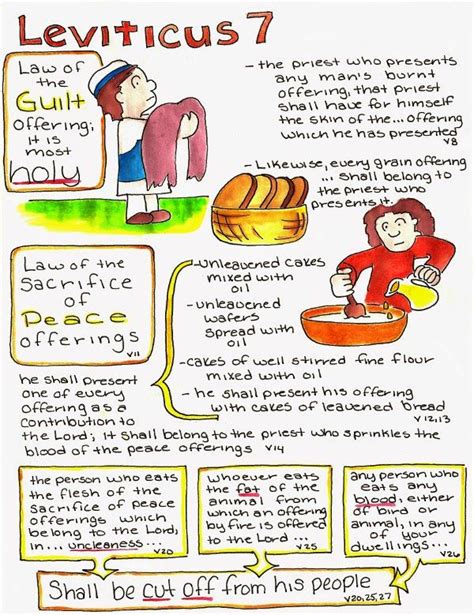 Leviticus 7
Law of
the
Guilt
offering;
it is
most
holy
- the priest who presents
any man's burnt
offering, that priest
shall have for himself
the skin of the... offering
which he has presented
v8
- Likewise, every grain offering
... shall belong to
the priest who
presents it.
Law of the
Sacrifice
of
Peace
offerings
v11
- unleavened cakes
mixed with
oil
- unleavened
wafers
spread with
oil
- cakes of well stirred fine flour
mixed with oil
- he shall present his offering
with cakes of leavened bread
v12,13
he shall present
one of every
offering as a
contribution to
the Lord; it shall belong to the priest who sprinkles the
blood of the peace offerings v14
the person who eats
the flesh of the
sacrifice of peace
offerings which
belong to the Lord,
in... uncleaness...
v20
whoever eats
the fat of the
animal from
which an offering
by fire is offered
to the Lord ...
v25
any person who
eats any
blood, either
of bird or
animal, in any
of your
dwellings...
v26
Shall be cut off from his people
v20,25,27